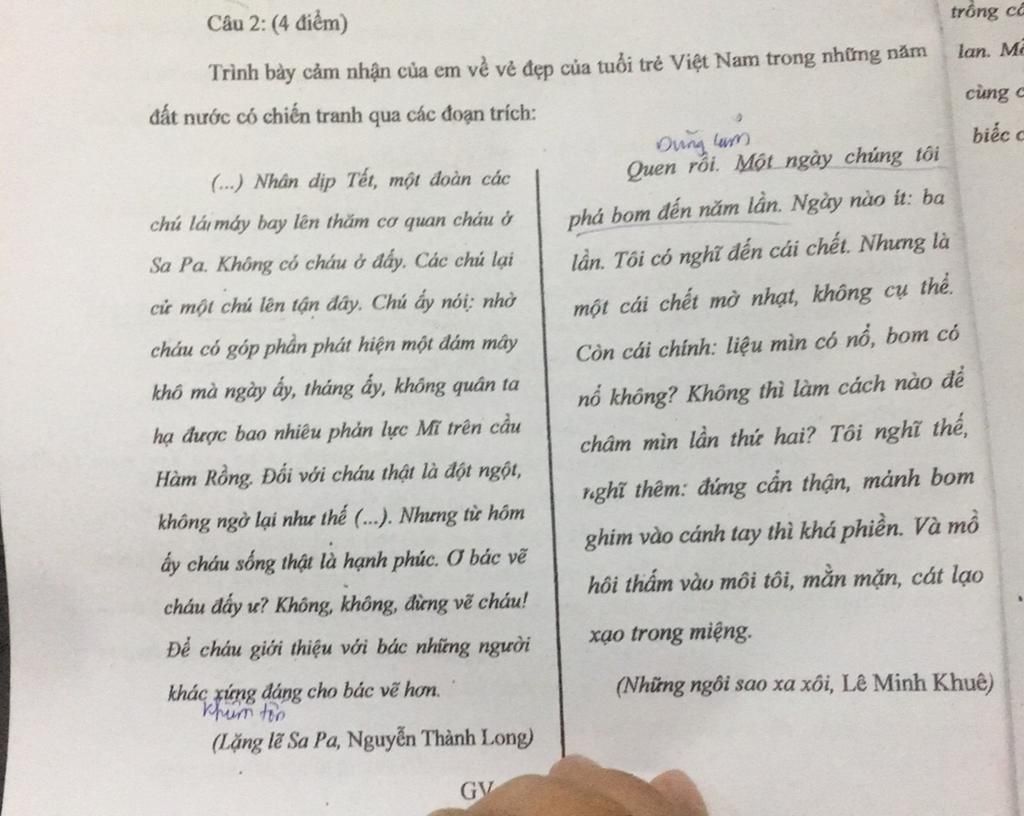 Câu 2: (4 điểm)
Trình bày cảm nhận của em về vẻ đẹp của tuổi trẻ Việt Nam trong những năm
đất nước có chiến tranh qua các đoạn trích:
(...) Nhân dịp Tết, một đoàn các
chú lái máy bay lên thăm cơ quan cháu ở
Sa Pa. Không có cháu ở đấy. Các chú lại
cử một chú lên tận đây. Chú ấy nói: nhờ
cháu có góp phần phát hiện một đám mây
khô mà ngày ấy, tháng ấy, không quân ta
hạ được bao nhiêu phản lực Mĩ trên cầu
Hàm Rồng. Đối với cháu thật là đột ngột,
không ngờ lại như thế (...). Nhưng từ hôm
ấy cháu sống thật là hạnh phúc. Ơ bác vẽ
cháu đấy ư? Không, không, đừng vẽ cháu!
Để cháu giới thiệu với bác những người
khác xứng đáng cho bác vẽ hơn.
khiêm tốn
(Lặng lẽ Sa Pa, Nguyễn Thành Long)
GV
Dũng cảm
Quen rồi. Một ngày chúng tôi
phá bom đến năm lần. Ngày nào ít: ba
lần. Tôi có nghĩ đến cái chết. Nhưng là
một cái chết mờ nhạt, không cụ thể.
Còn cái chính: liệu mìn có nổ, bom có
nổ không? Không thì làm cách nào để
châm mìn lần thứ hai? Tôi nghĩ thế,
nghĩ thêm: đứng cẩn thận, mảnh bom
ghim vào cánh tay thì khá phiền. Và mồ
hôi thấm vào môi tôi, mằn mặn, cát lạo
xạo trong miệng.
(Những ngôi sao xa xôi, Lê Minh Khuê)
trồng
lan.
cùng
biếc